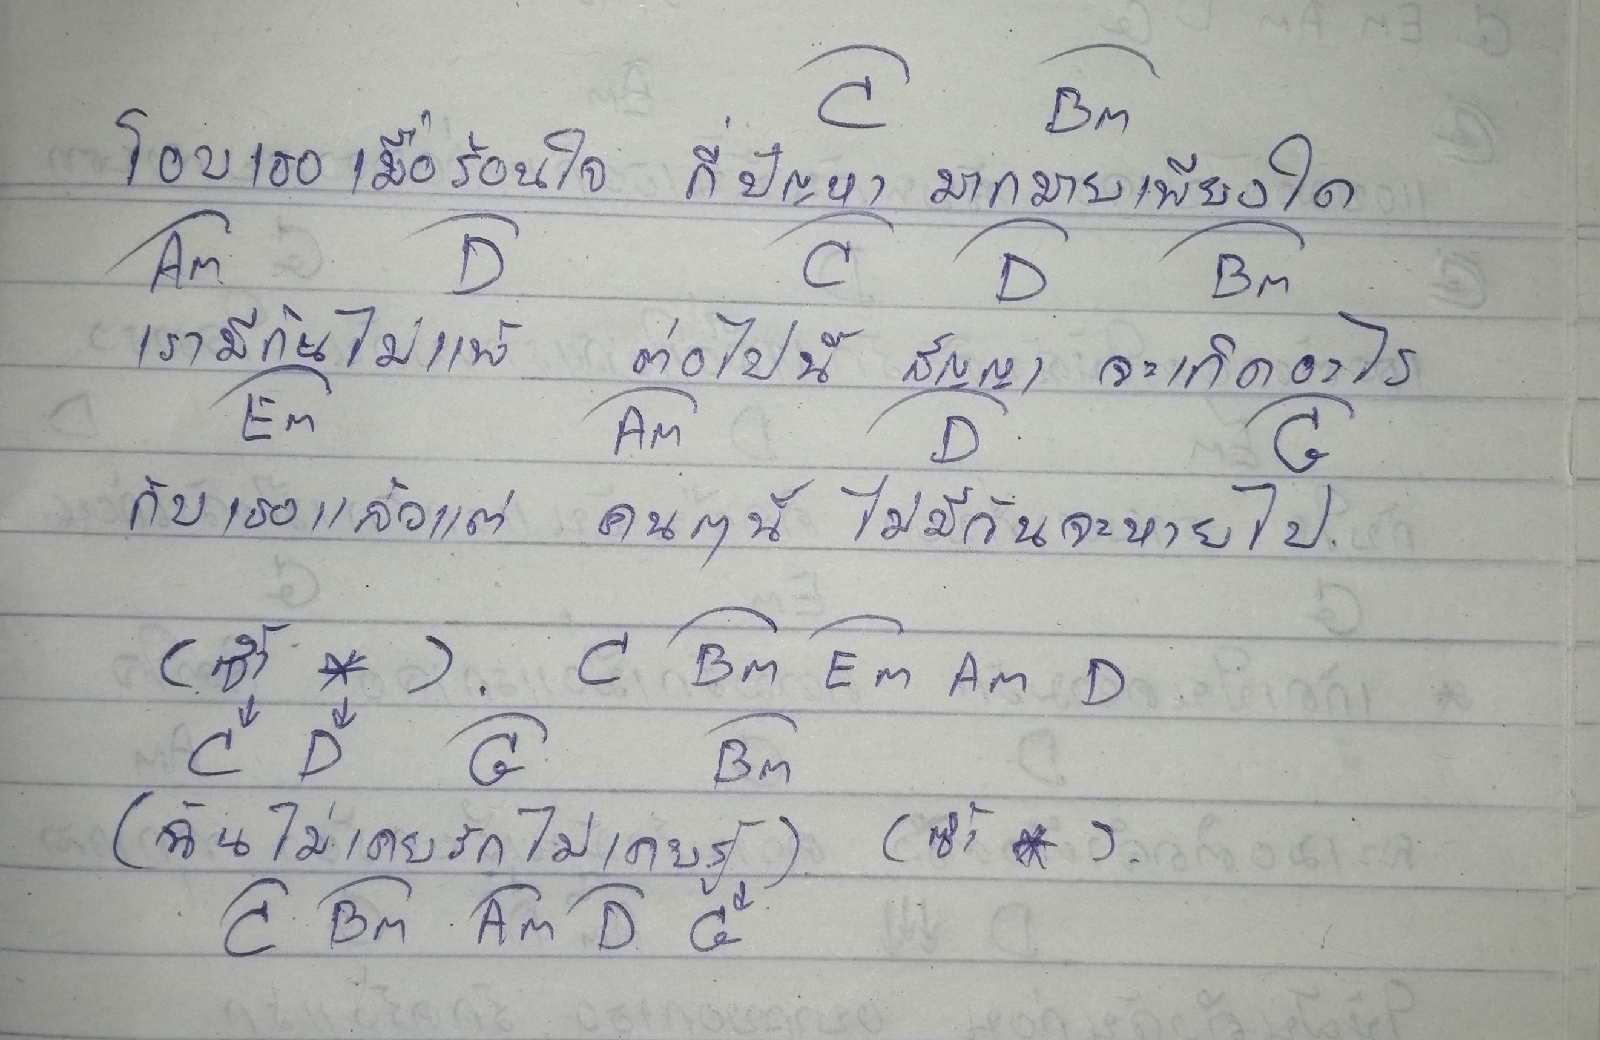 C Bm
โอบเธอเมื่อร้อนใจ กี่ปัญหา มากมายเพียงใด
Am D C D Bm
เรามีกันไม่แพ้ ต่อไปนี้ สัญญา จะเกิดอะไร
Em Am D G
กับเธอแล้วแต่ คนๆนี้ ไม่มีวันจะหายไป.
(ซ้ำ *). C Bm Em Am D
C D G Bm
(ฉันไม่เคยรักไม่เคยรู้) (ซ้ำ *).
C Bm Am D G